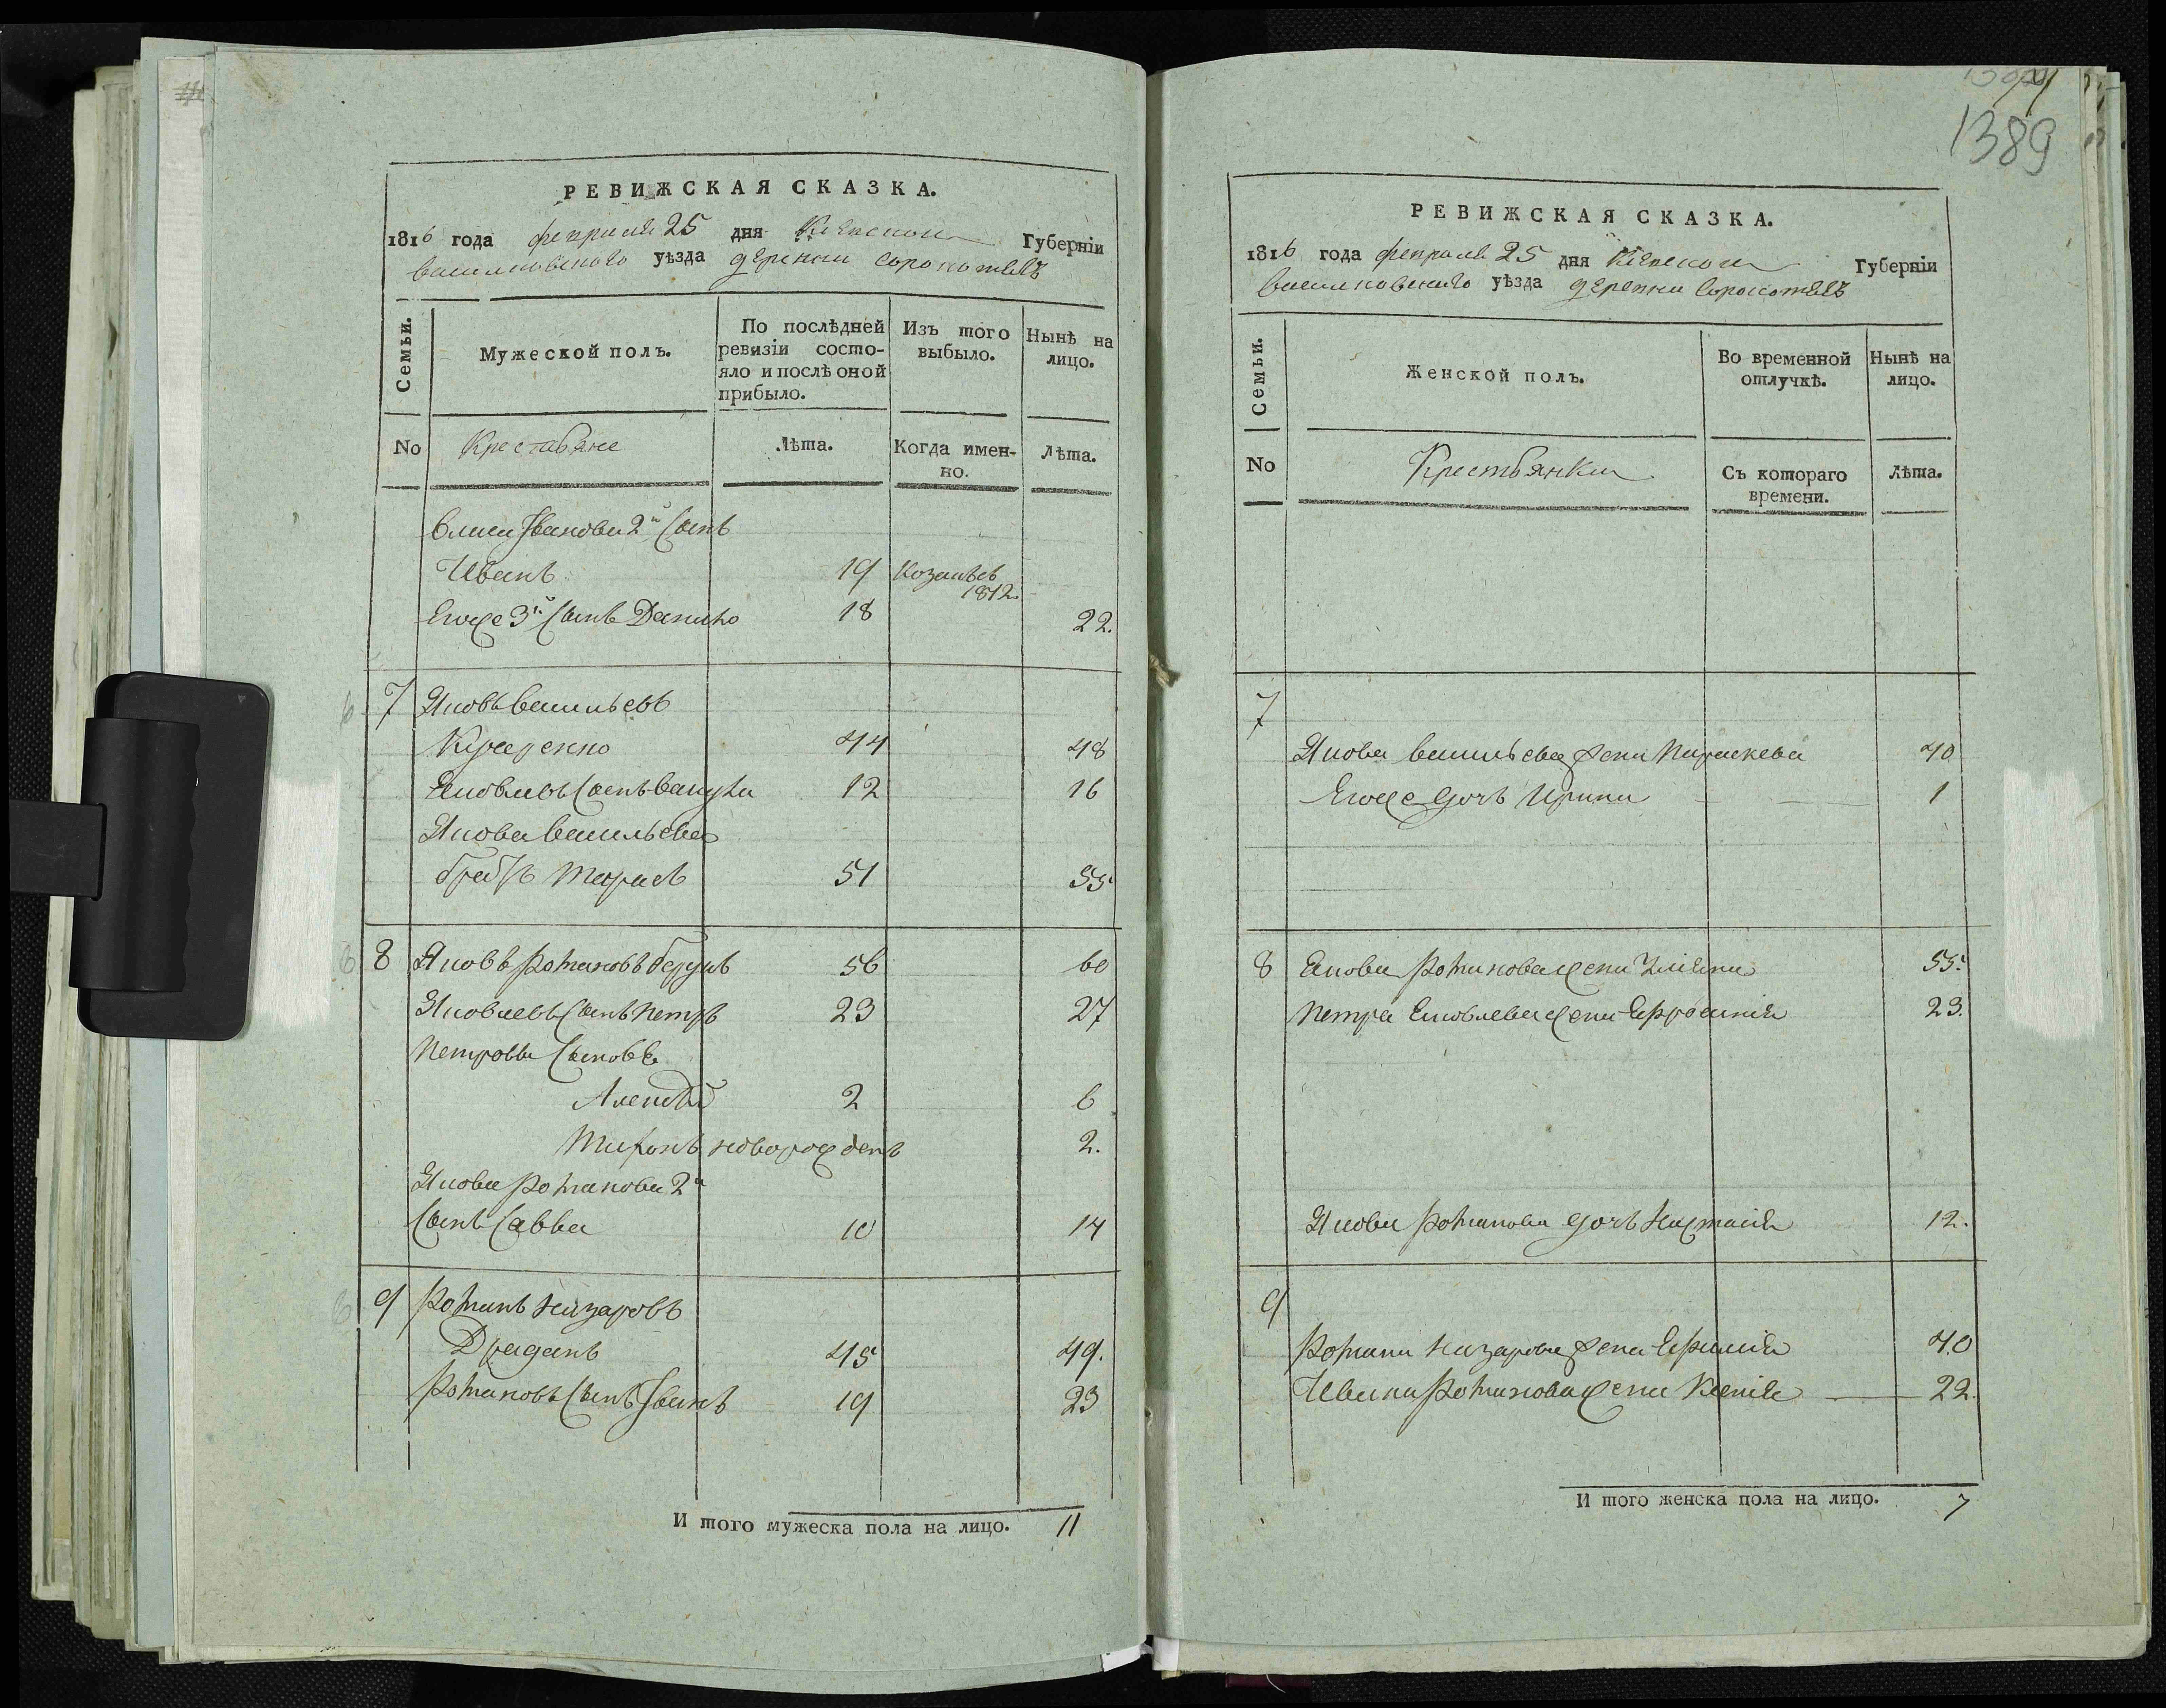 РЕВИЖСКАЯ СКАЗКА.
1816 года февраля 25 дня Кіевской Губерніи
васильковского уѣзда деревни Сорокотягъ
Семьи.
Мужеской полъ.
По послѣдней ревизіи состояло и послѣ оной прибыло.
Изъ того выбыло.
Нынѣ на лицо.
No
Крестьяне
Лѣта.
Когда именно.
Лѣта.
Ивановы 2й Сынъ
Иванъ 19 1812.
Егоже 3й Сынъ Данило 18 22.
7 Яковъ васильевъ
44 48
Яковлевъ Сынъ 12 16
Якова васильева
братъ Тарасъ 51 55
8 Яковъ Романовъ 56 60
Яковлевъ Сынъ Петръ 23 27
Петровы Сыновья
Алексѣй 2 6
Миронъ новорожденъ 2.
Якова Романова 2й
Сынъ Савва 10 14
9 Романъ Назаровъ
Драганъ 45 49.
Романовъ Сынъ Іванъ 19 23
И того мужеска пола на лицо. 11
1389
РЕВИЖСКАЯ СКАЗКА.
1816 года февраля 25 дня Кіевской Губерніи
васильковского уѣзда деревни Сорокотягъ
Семьи.
Женской полъ.
Во временной отлучкѣ.
Нынѣ на лицо.
No
Крестьянки
Съ котораго времени.
Лѣта.
7
Якова васильева жена Параскева 40
Егоже дочь Ирина 1
8 Якова Романова жена Уліяна 55.
Петра Яковлева жена Ефросинія 23.
Якова Романова дочь Настасія 12.
9
Романа Назарова жена Ефимія 40
Ивана Романова жена Ксенія 22.
И того женска пола на лицо. 7